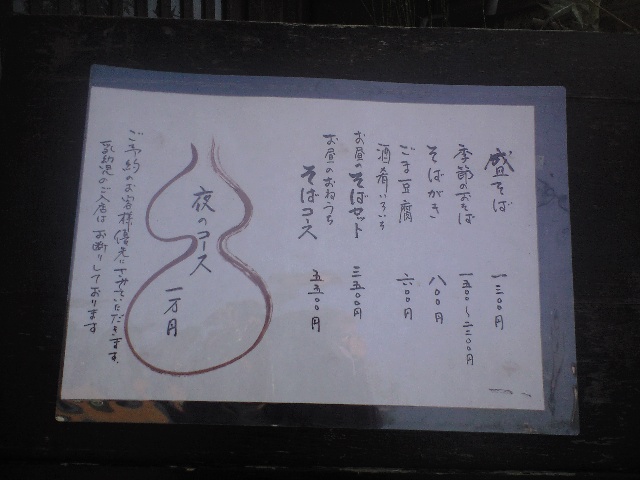 盛そば 一三〇〇円
季節のおそば 一五〇〇〜二二〇〇円
そばがき 八〇〇円
ごま豆腐 六〇〇円
酒肴いろいろ
お昼のそばセット 三五〇〇円
お昼のおねうち
そばコース 五五〇〇円
夜のコース 一万円
ご予約のお客様優先にさせていただきます。
乳幼児のご入店はお断りしております